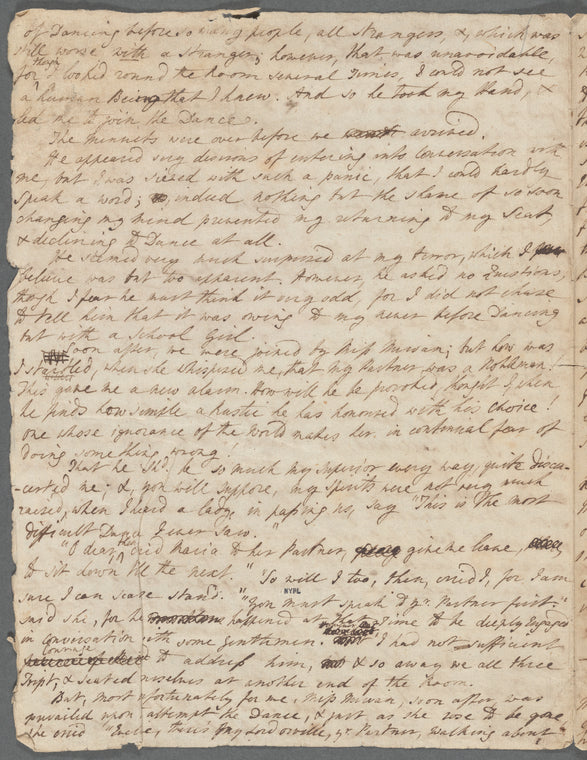 of Dancing before so many people, all Strangers, &, which was
still worse with a Stranger; however, that was unavoidable,
for though I look'd round the Room several Times, I could not see
a human Being that I knew. And so he took my Hand, &
led me to join the Dance.
The minuets were over before we arrived.
He appeared very desirous of entering into Conversation with
me, but I was seized with such a panic, that I could hardly
speak a word; indeed nothing but the shame of so soon
changing my mind prevented my returning to my Seat,
& declining to Dance at all.
He seemed very much surprised at my terror, which I
believe was but too apparent. However, he asked no Questions,
though I fear he must think it very odd, for I did not chuse
to tell him that it was owing to my never before Dancing
but with a School Girl.
Soon after, we were joined by Miss Mirvan; but how was
I Startled, when she whispered me, that my Partner was a Nobleman!
This gave me a new alarm. How will he be provoked, thought I, when
he finds how simple a rustic he has honoured with his Choice!
one whose ignorance of the World makes her in continual fear of
doing something wrong!
That he Shd. be so much my Superior every way, quite discon-
-certed me; &, you will suppose, my spirits were not very much
raised, when I heard a lady, in passing us, say "This is the most
difficult Dance I ever saw."
"O dear, then cried Maria to her Partner, give me leave,
to sit down till the next." "So will I too, then, cried I, for I am
sure I can scarce stand." "you must speak to yr. Partner first"
said she, for he happened at the Time to be deeply Engaged
in Conversation with some Gentlemen. I had not sufficient
Courage to address him, & so away we all three
Tript, & seated ourselves at another end of the Room.
But, most unfortunately for me, Miss Mirvan, soon after, was
prevailed upon to attempt the Dance, & just as she rose to be gone,
she cried "Evelina, there's my Lord Orville, yr. Partner, walking about
NYPL